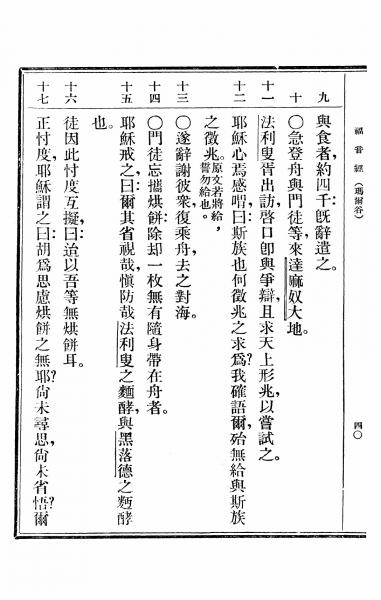 福音經（瑪爾谷）
四〇
九 與食者，約四千；旣辭遣之。
十 〇急登舟與門徒等來達麻奴大地。
十一 法利叟胥出訪，啓口卽與爭辯，且求天上形兆，以嘗試之。
十二 耶穌心焉感喟：曰斯族也何徵兆之求爲？我確語爾，殆無給與斯族
之徵兆。原文若將給，誓勿給也。
十三 〇遂辭謝彼衆，復乘舟，去之對海。
十四 〇門徒忘攜烘餅，除却一枚無有隨身帶在舟者。
十五 耶穌戒之：曰爾其省視哉，愼防哉，法利叟之麵酵，與黑落德之麪酵
也。
十六 徒因此忖度互擬：曰迨以吾等無烘餅耳。
十七 正忖度，耶穌謂之：曰胡爲思慮烘餅之無耶？尙未尋思，尙未省悟？爾